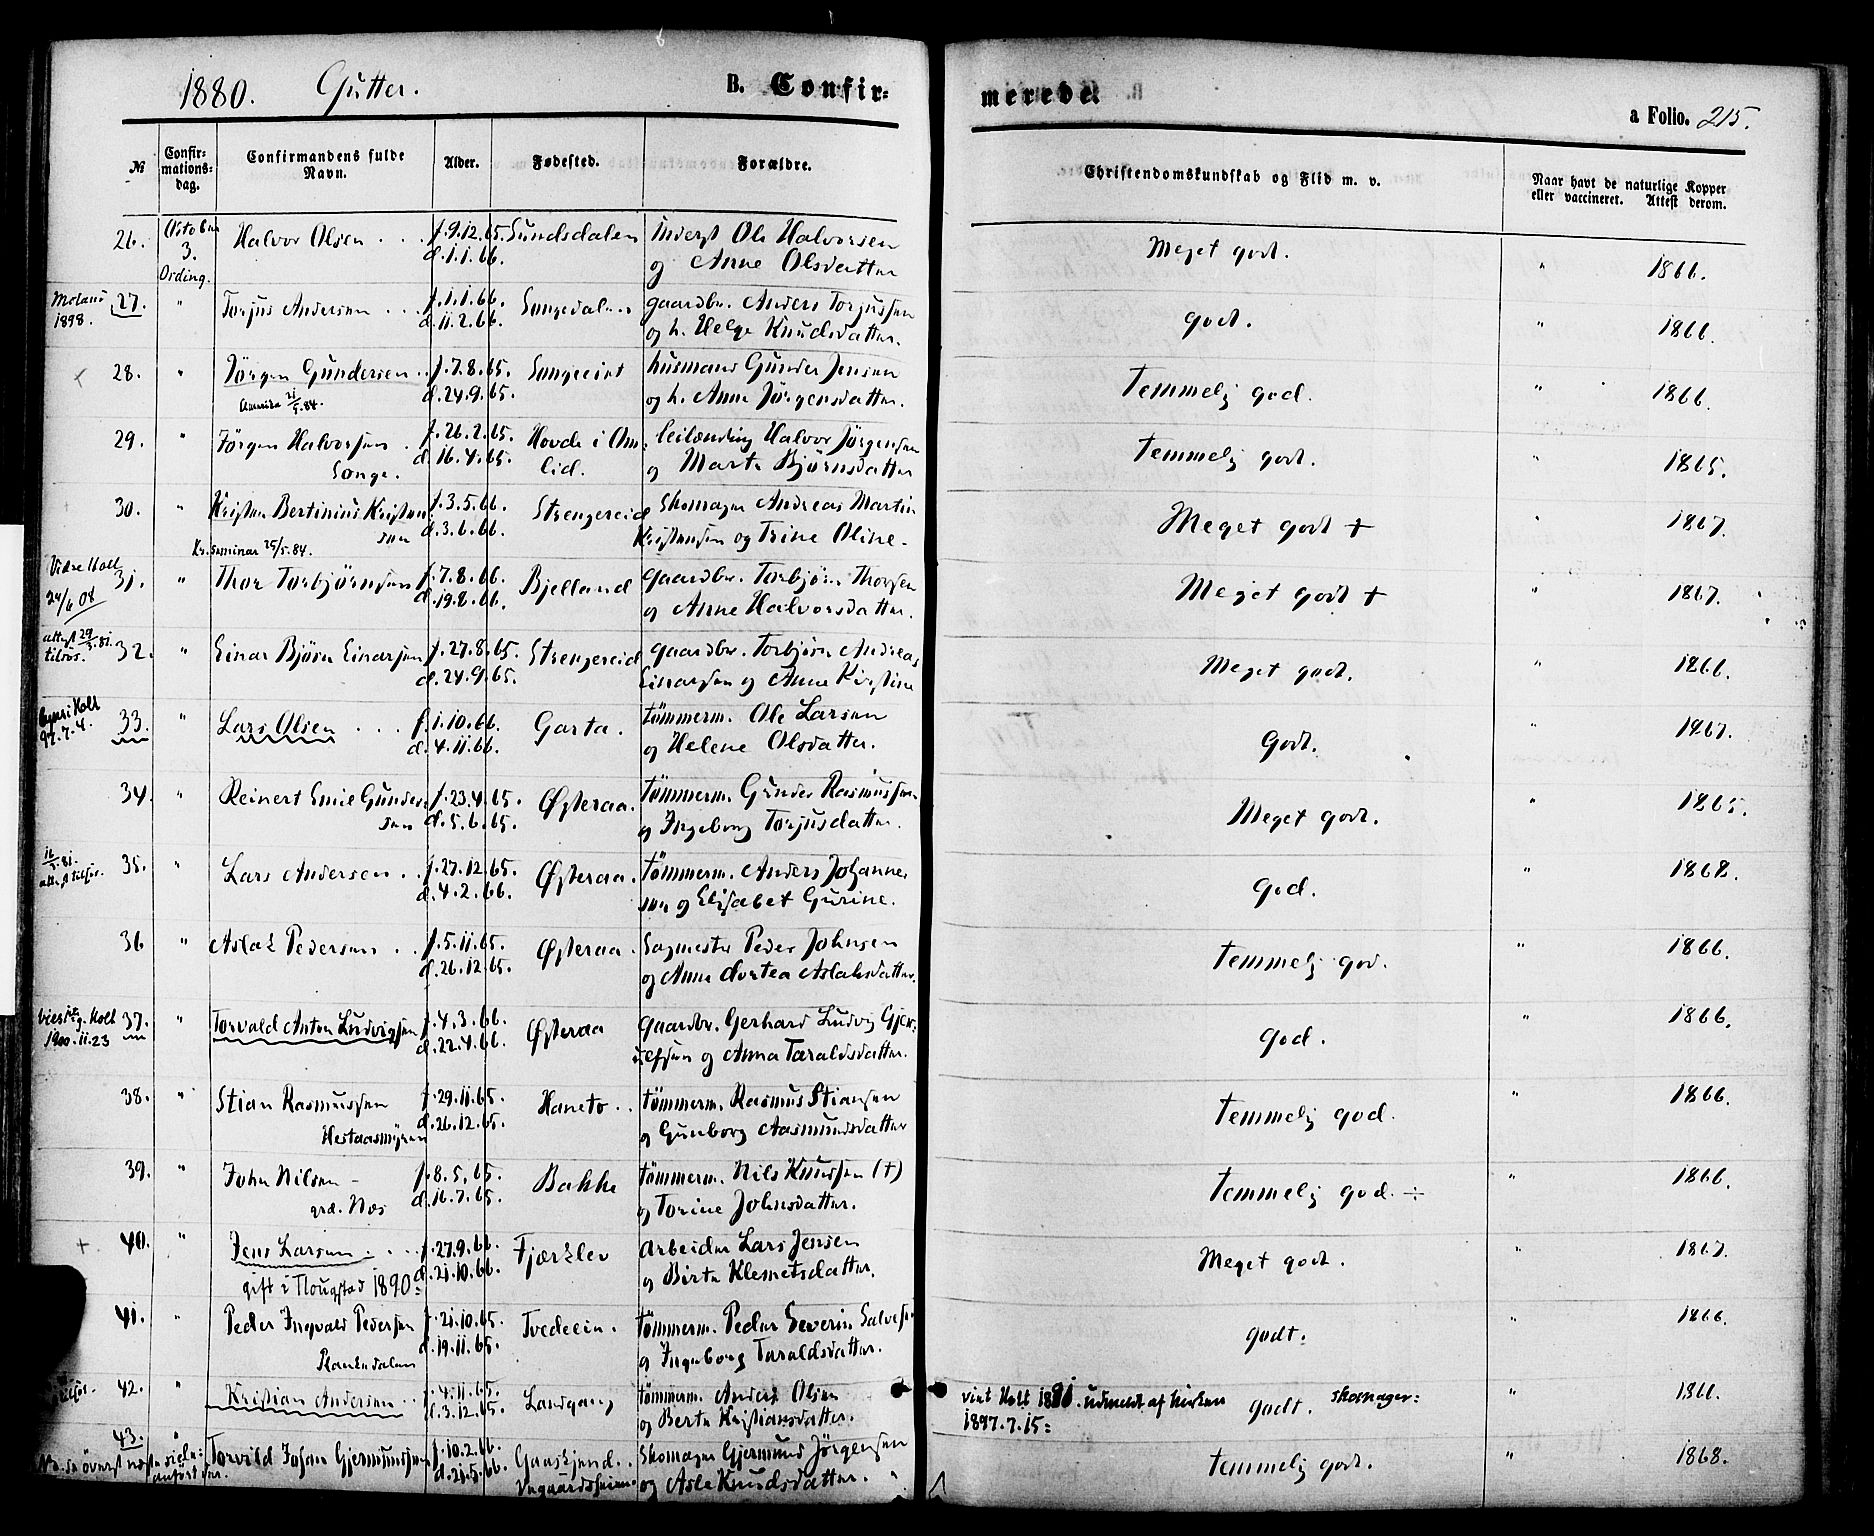 1880. Gutter. B. Confir-
merede.
a Folio. 215.
№ Confir-mations-dag. Confirmandens fulde Navn. Alder. Fødested. Forældre. Christendomskundskab og Flid m. v. Naar havt de naturlige Kopper eller vaccineret. Attest derom.
26. October Halvor Olsen . . . f. 9.12.65. Sundsdalen Inderst Ole Halvorsen Meget godt. " 1866.
3. d. 1.1.66. og Anne Olsdatter
Osding.
27. " Torjus Andersen . . . f. 1.1.66. Songedalen gaardbr. Anders Torjussen godt. " 1866.
1898. d. 11.2.66. og h. Helge Knudsdatter.
28. " Jörgen Gundersen . . f. 7.8.65. Songeeiet husmand Gunder Jensen Temmelig god. " 1866.
Amerika 21/5.84. d. 24.9.65. og h. Anne Jörgensdatter.
29. " Jörgen Halvorsen . f. 26.2.65. Hovde i Om- leilænding Halvor Jörgensen Temmelig godt. " 1865.
Songe. d. 16.4.65. lid. og Marte Bjørnsdatter
30. " Kristen Bertinius Kristen f. 3.5.66. Strengereid Skomager Andreas Martin Meget godt + " 1867.
sen d. 3.6.66. Kristensen og Trine Oline.
Kr. Seminar 25/5.84.
31. " Thor Torbjørnsen f. 7.8.66. Bjelland gaardbr. Torbjörn Thorsen Meget godt + " 1867.
24/6 08 d. 19.8.66. og Anne Halvorsdatter.
attest 29/5.81. tilsøs. 32. " Einar Bjørn Einarsen f. 27.8.65. Strengereid gaardbr. Torbjörn Andreas Meget godt. " 1866.
d. 24.9.65. Einarsen og Anne Kirstine
33. " Lars Olsen . . . f. 1.10.66. Garta. tömmerm. Ole Larsen Godt. " 1867.
97.7.4. d. 4.11.66. og Helene Olsdatter.
34. " Reinert Emil Gunder- f. 23.4.65. Østeraa. tömmerm. Gunder Rasmussen Meget godt. " 1865.
sen d. 5.6.65. og Ingeborg Torjusdatter.
35. " Lars Andersen . . f. 27.12.65. Østeraa. tömmerm. Anders Johanne- God. " 1868.
attest tilsös. d. 4.2.66. sen og Elisabet Gurine.
36 " Aslak Pedersen . . f. 5.11.65. Østeraa. Sagmester Peder Johnsen Temmelig god. " 1866.
d. 26.12.65. og Anne Dortea Aslaksdatter.
37. " Torvald Anton Ludvigsen f. 4.3.66. Østeraa gaardbr. Gerhard Ludvig Gjer- God. " 1866.
1900.11.23 d. 22.4.66. ulfsen og Anna Taraldsdatter.
38. " Stian Rasmussen f. 29.11.65. Haneto . . tömmerm. Rasmus Stiansen Temmelig god. " 1866.
Hestaasmyren d. 26.12.65. og Gunborg Aasmundsdatter
39. " John Nilsen f. 8.5.65. Bakke tömmerm. Nils Knudsen (+) Temmelig god. ÷ " 1866.
grd. Næs d. 16.7.65. og Torine Johnsdatter.
+ 40. " Jens Larsen . . . f. 27.9.66. Fjærklev Arbeider Lars Jensen Meget godt. " 1867.
gift i 1890 d. 21.10.66. og Birte Klemetsdatter.
41. " Peder Ingvald Pedersen f. 21.10.65. Tvedeein. tömmerm. Peder Severin Salves- godt. " 1866.
d. 19.11.65. og Ingeborg Taraldsdatter.
42. " Kristian Andersen f. 4.11.65. Landgang tömmerm. Anders Olsen viet Holt 1891. udmeldt af kirken godt. skomager: " 1866.
d. 3.12.65. og Berte Kristiansdatter. 1897.7.15:
43. " Torvild Johan Gjermundsen f. 10.2.66. Gaaskjend. Skomager Gjermund Jörgensen Temmelig godt. " 1868.
d. 21.5.66. og Asle Knudsdatter.